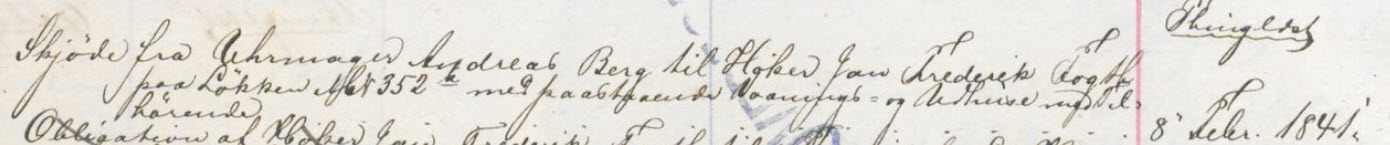 Thinglæst
Skjöde fra Uhrmager Andreas Berg til Höker Jan Frederik Fogth
paa Lökken No 352 a med paastaaende Vaanings- og Udhuse med Til-
hörende
8 Febr. 1841.
Obligation af Höker Jan Frederik